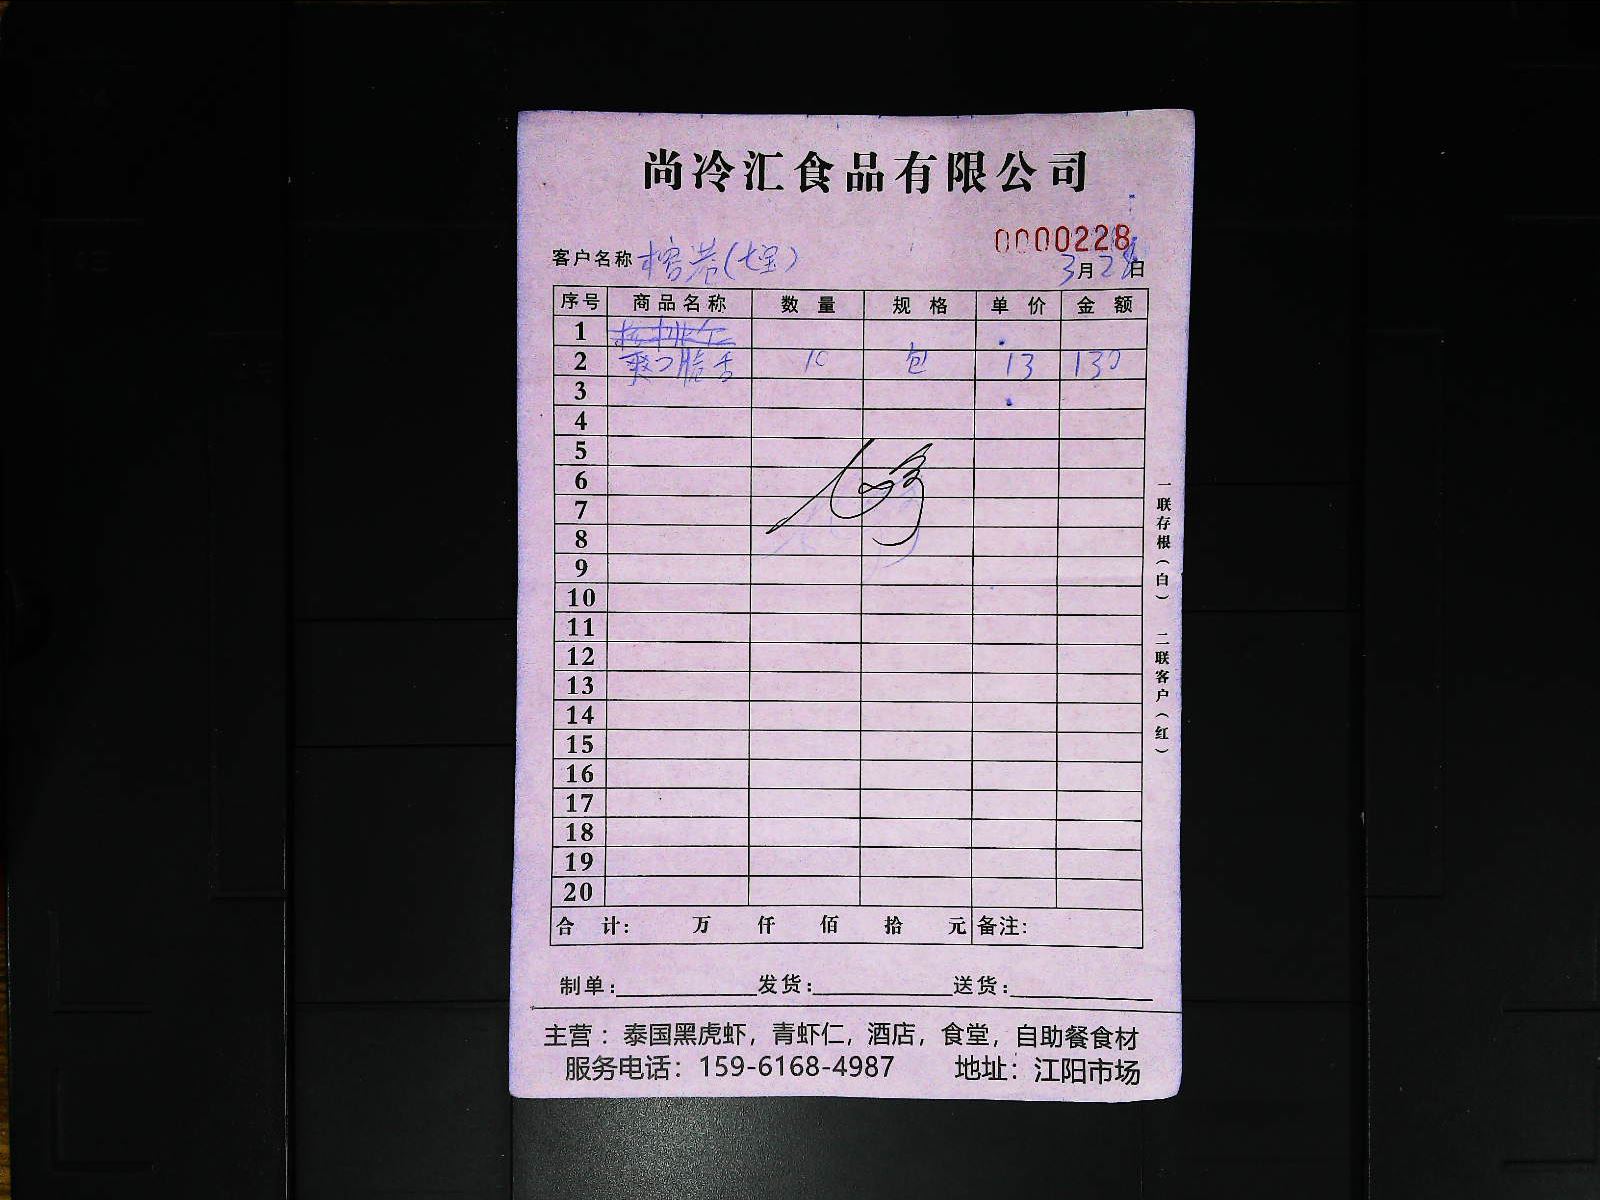 尚冷汇食品有限公司
0000228
客户名称 榕巷(七宝)
3月2日
序号 商品名称 数量 规格 单价 金额
1
2 爽口脆舌 10 包 13 130
3
4
5
6
7
8
9
10
11
12
13
14
15
16
17
18
19
20
合计: 万 仟 佰 拾 元 备注:
一联存根(白) 二联客户(红)
制单: 发货: 送货:
主营：泰国黑虎虾，青虾仁，酒店，食堂，自助餐食材
服务电话：159-6168-4987 地址：江阳市场